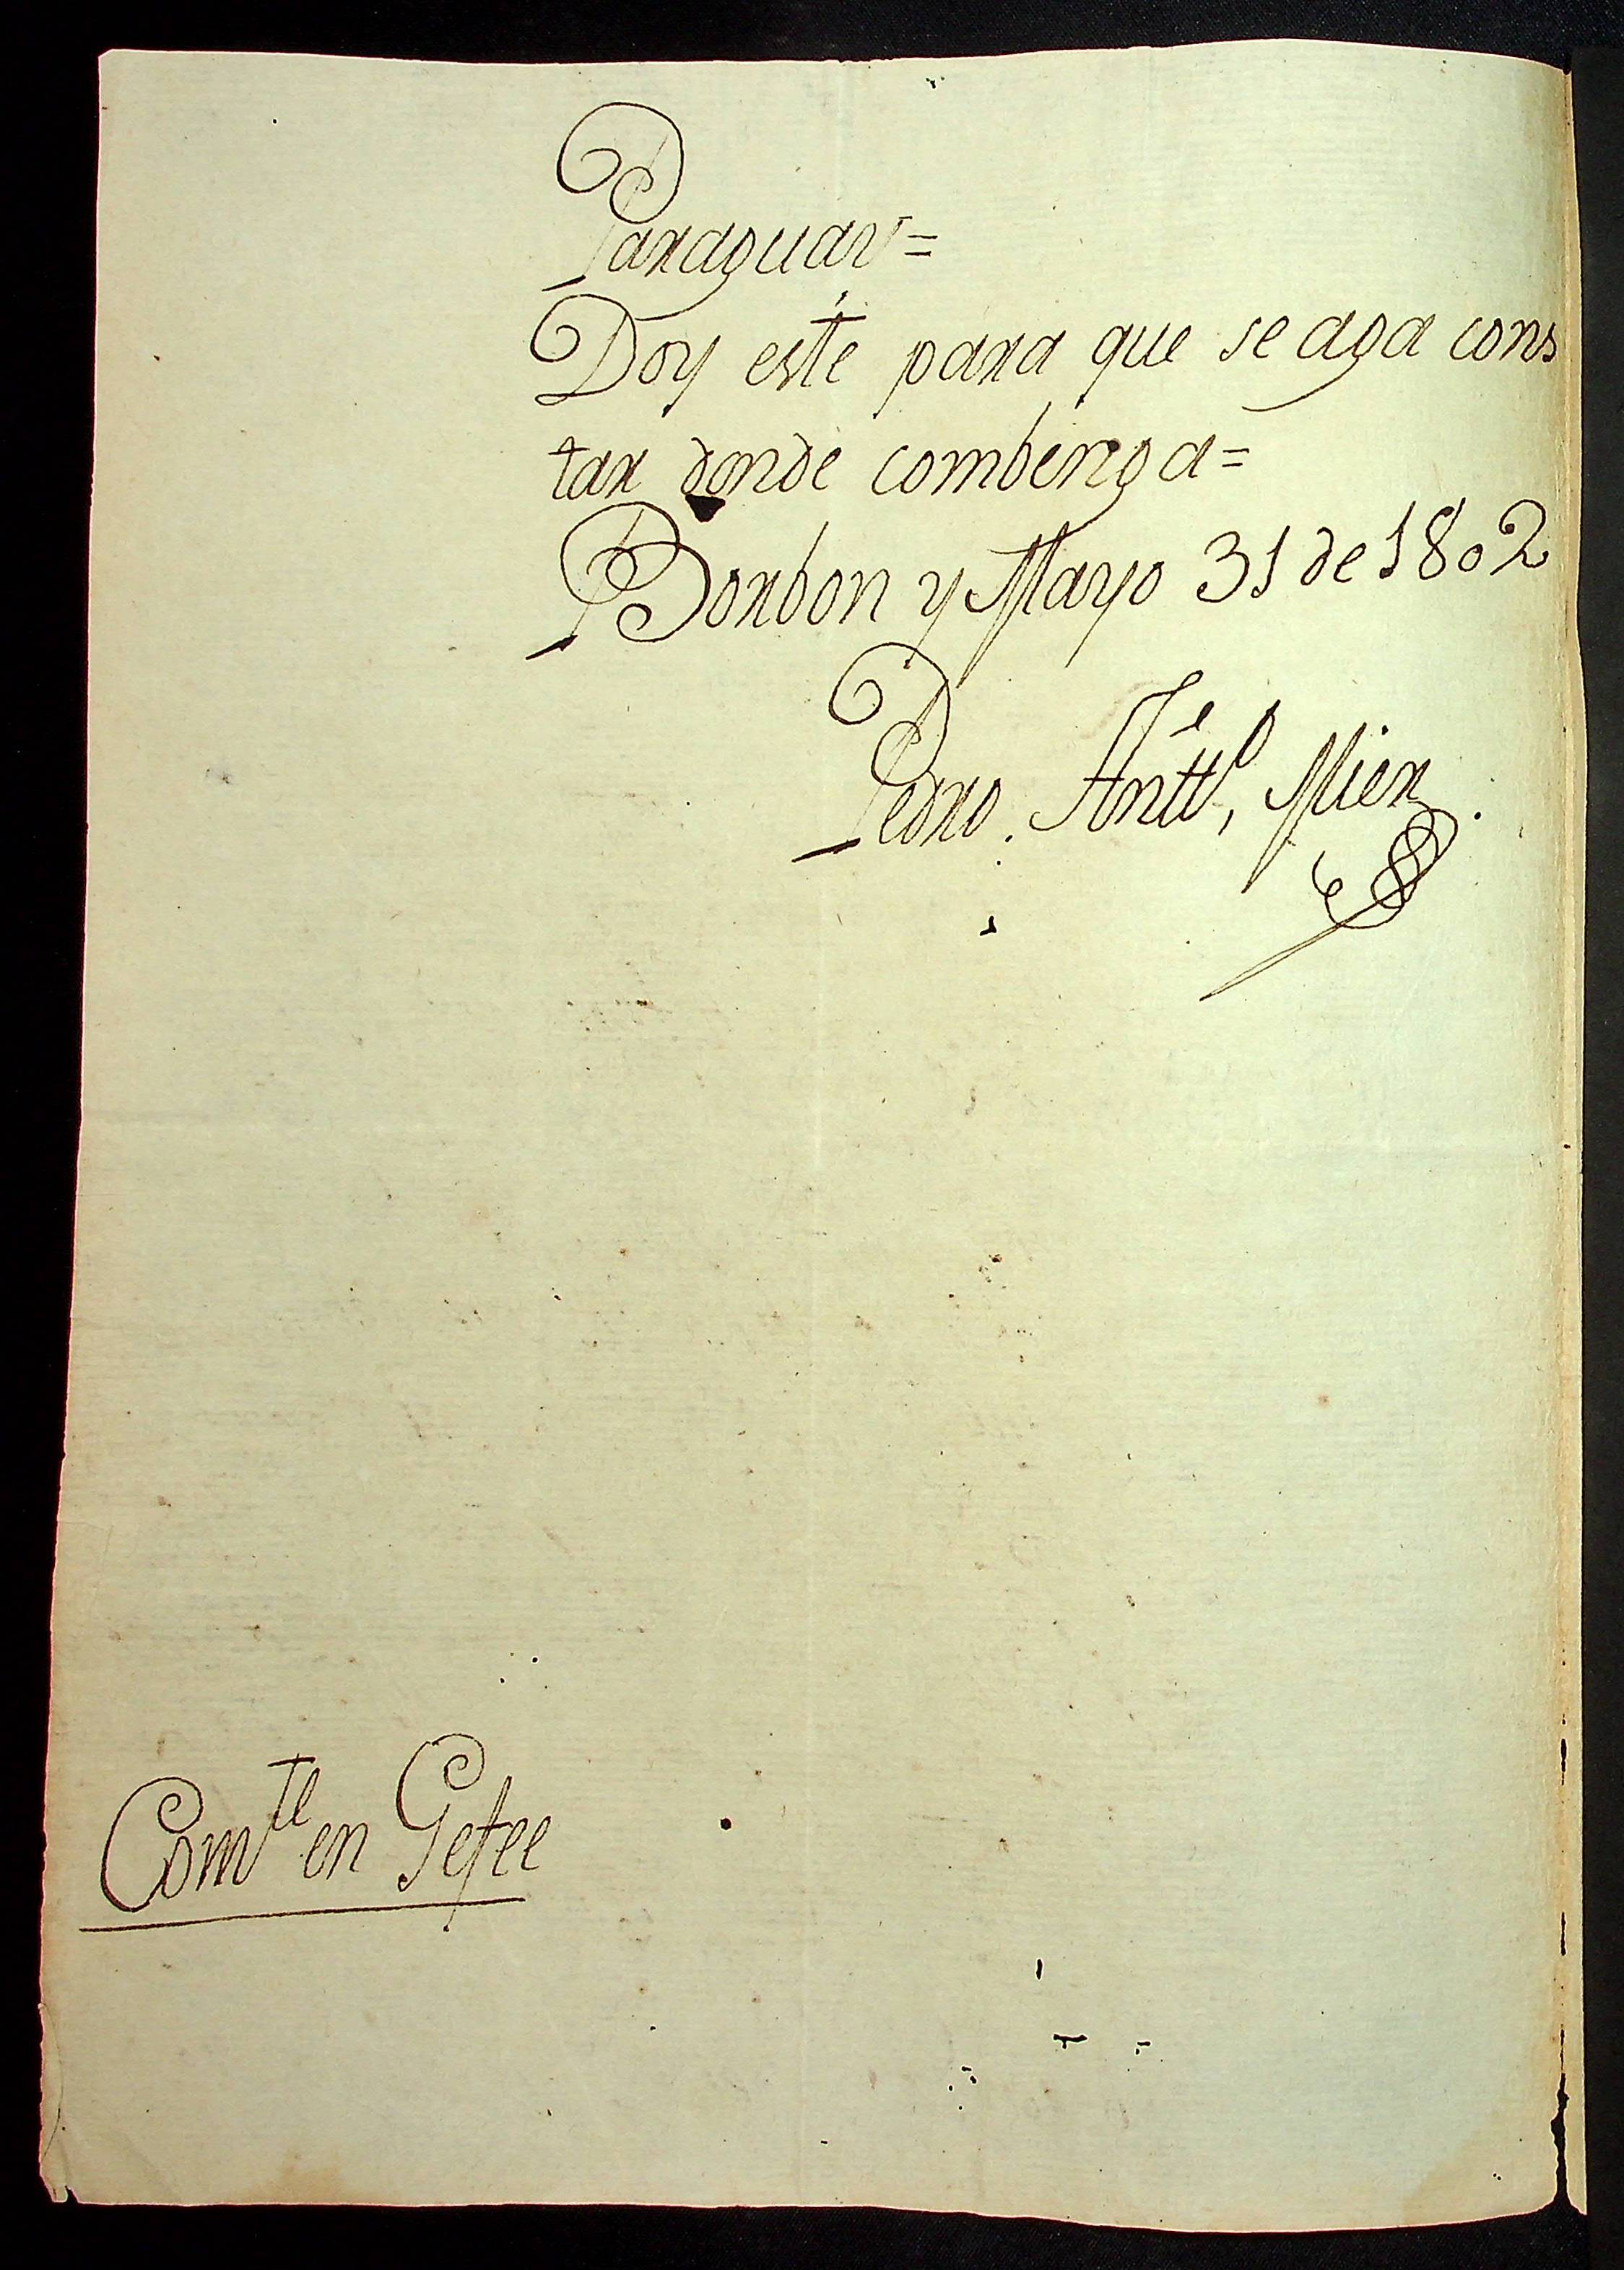 Paraguay=
Doy este para que se aga cons
tar donde combenga=
Borbon y Mayo 31 de 1802
Pedro. Antto, Mier.
Comte en Gefee